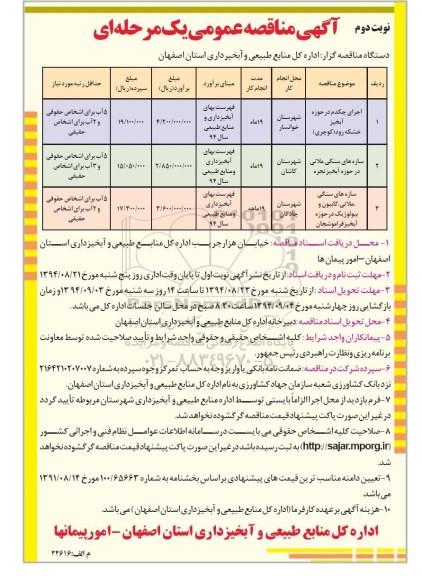 نوبت دوم
آگهی مناقصه عمومی یک مرحله‌ای
دستگاه مناقصه گزار: اداره کل منابع طبیعی و آبخیزداری استان اصفهان
ردیف | موضوع مناقصه | محل انجام کار | مدت انجام کار | مبنای برآورد | مبلغ برآورد(ریال) | مبلغ سپرده(ریال) | حداقل رتبه مورد نیاز
۱ | اجرای چکدم در حوزه آبخیز خشکه رود(کوجری) | شهرستان خوانسار | ۱۹ماه | فهرست بهای آبخیزداری و منابع طبیعی سال ۹۴ | ۴/۲۰۰/۰۰۰/۰۰۰ | ۱۹/۱۰۰/۰۰۰ | ۵آب برای اشخاص حقوقی و ۲آب برای اشخاص حقیقی
۲ | سازه های سنگی ملاتی در حوزه آبخیز تجره | شهرستان کاشان | ۱۹ماه | فهرست بهای آبخیزداری ومنابع طبیعی سال ۹۴ | ۲/۸۵۰/۰۰۰/۰۰۰ | ۱۵/۰۵۰/۰۰۰ | ۵آب برای اشخاص حقوقی و ۲آب برای اشخاص حقیقی
۳ | سازه های سنگی ،ملاتی،گابیون و بیولوژیک در حوزه آبخیز فراموشجان | شهرستان چادگان | ۱۹ماهه | فهرست بهای آبخیزداری ومنابع طبیعی سال ۹۴ | ۳/۶۰۰/۰۰۰/۰۰۰ | ۱۷/۳۰۰/۰۰۰ | ۵آب برای اشخاص حقوقی و ۲آب برای اشخاص حقیقی
۱- محل دریافت اسناد مناقصه: خیابان هزار جریب اداره کل منابع طبیعی و آبخیزداری استان
اصفهان-امور پیمان ها
۲-مهلت ثبت نام و دریافت اسناد: از تاریخ نشر آگهی نوبت اول تا پایان وقت اداری روز پنج شنبه مورخ ۱۳۹۴/۰۸/۲۱
۳-مهلت تحویل اسناد: از تاریخ شنبه مورخ ۱۳۹۴/۰۸/۲۳ تا ساعت ۱۴ روز سه شنبه مورخ ۱۳۹۴/۰۹/۰۳ و زمان
بازگشایی روز چهارشنبه مورخ ۱۳۹۴/۰۹/۰۴ ساعت ۸:۳۰ صبح در محل سالن جلسات اداره کل می باشد.
۴-محل تحویل اسناد مناقصه: دبیرخانه اداره کل منابع طبیعی و آبخیزداری استان اصفهان
۵-پیمانکاران واجد شرایط: کلیه اشخاص حقیقی و حقوقی واجد شرایط و تأیید صلاحیت شده توسط معاونت
برنامه ریزی و نظارت راهبردی رئیس جمهور.
۰۲۱-۸۸۳۴۹۶۷۰-۵
۶-سپرده شرکت در مناقصه: ضمانت نامه بانکی یا واریز وجه به حساب تمرکز وجوه سپرده به شماره ۲۱۶۴۲۱۰۲۰۷۰۰۷
نزد بانک کشاورزی شعبه سازمان جهاد کشاورزی به نام اداره کل منابع طبیعی و آبخیزداری استان اصفهان.
۷-فرم بازدید از محل اجرا الزاماً بایستی توسط اداره منابع طبیعی و آبخیزداری شهرستان مربوطه تأیید گردد
در غیر این صورت پاکت پیشنهاد قیمت مناقصه گر گشوده نخواهد شد.
۸-صلاحیت کلیه اشخاص حقوقی می بایست در سامانه اطلاعات عوامل نظام فنی و اجرائی کشور
(http://sajar.mporg.ir) به ثبت رسیده باشد در غیر این صورت پاکت پیشنهاد قیمت مناقصه گر گشوده نخواهد
شد.
۹-تعیین دامنه مناسب ترین قیمت های پیشنهادی بر اساس بخشنامه به شماره ۱۰۰/۶۵۶۶۳ مورخ ۱۳۹۱/۰۸/۱۴
می باشد.
۱۰-هزینه آگهی بر عهده کارفرما (اداره کل منابع طبیعی و آبخیزداری استان اصفهان) می باشد.
اداره کل منابع طبیعی و آبخیزداری استان اصفهان -امور پیمانها
م الف:۲۲۶۱۶